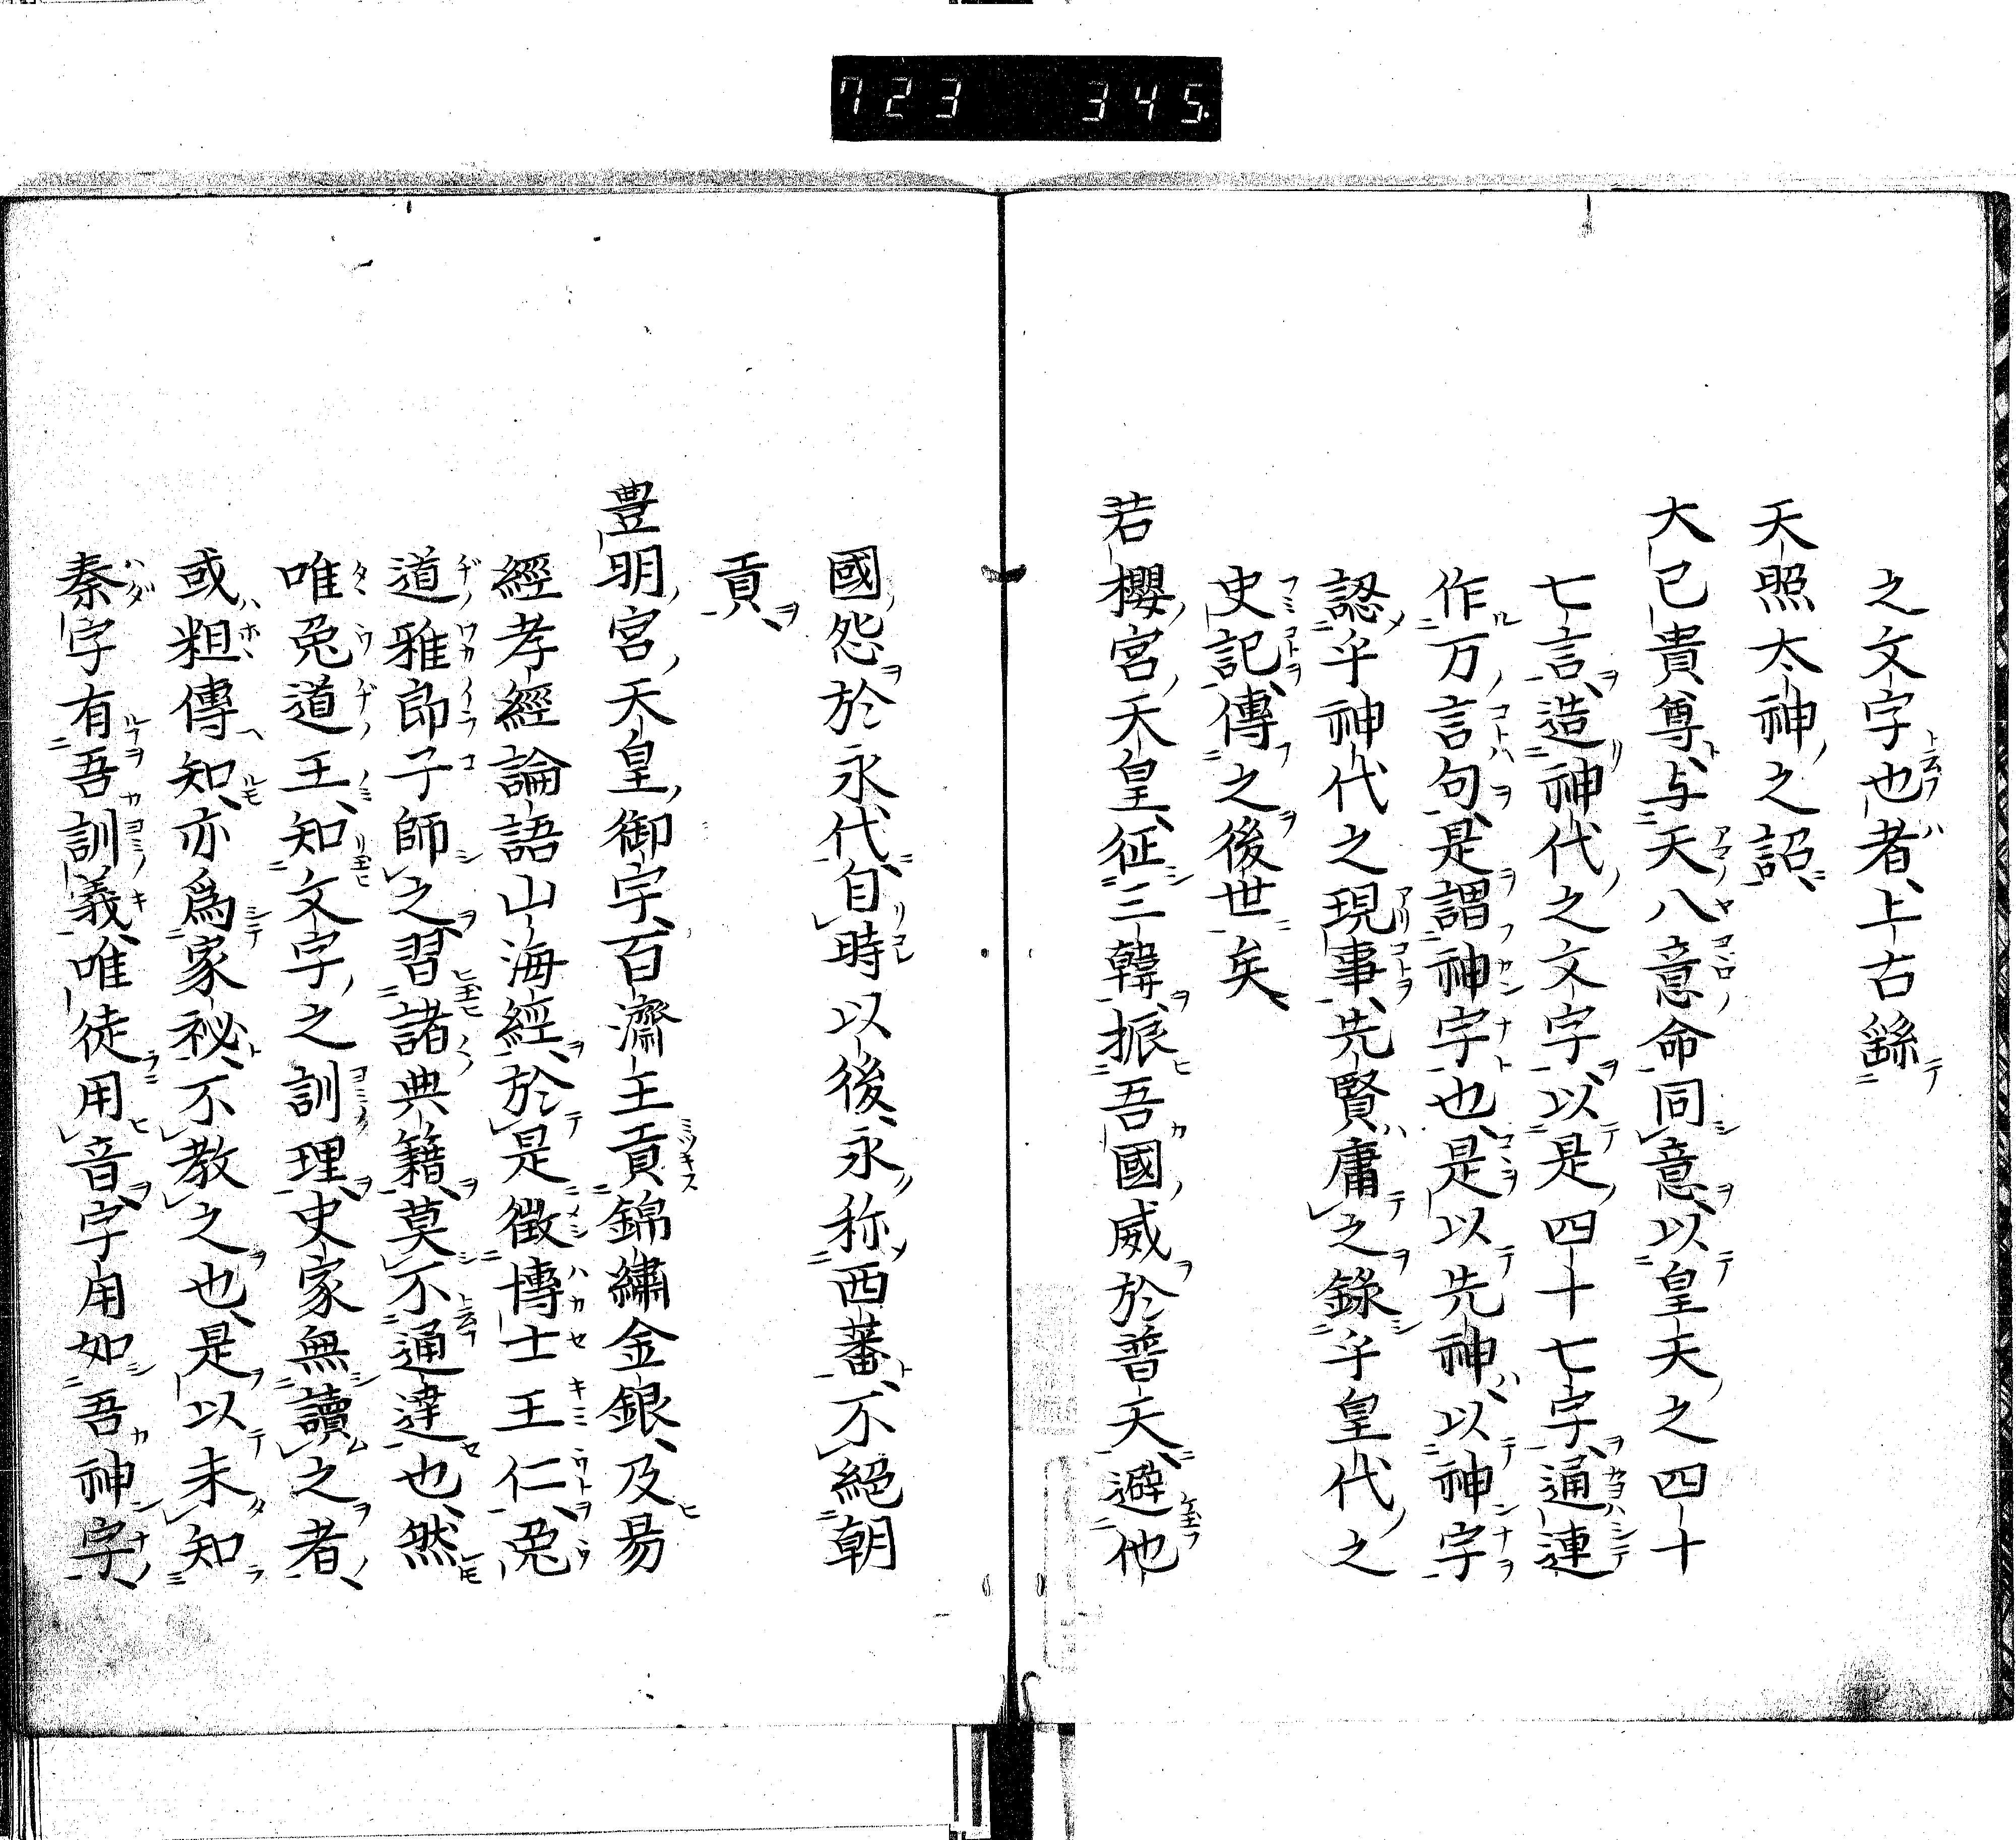 723 345
之文字也者上古繇
天照太神之詔
大已貴尊与天八意命同意以皇天之四十
七言造神代之文字以是四十七字通連
作万言句是謂神字也是以先神以神字
認乎神代之現事先賢庸之錄乎皇代之
史記傳之後世矣
若櫻宮天皇征三韓振吾國威於普天避他
國怨於永代自時以後永称西蕃不絕朝
貢
豊明宮天皇御宇百濟王貢錦繡金銀及昜
經孝經論語山海經於是徵博士王仁兎
道雅郎子師之習諸典籍莫不通達也然
唯兎道王知文字之訓理史家無讀之者
或粗傳知亦爲家祕不教之也是以未知
秦字有吾訓義唯徒用音字用如吾神字